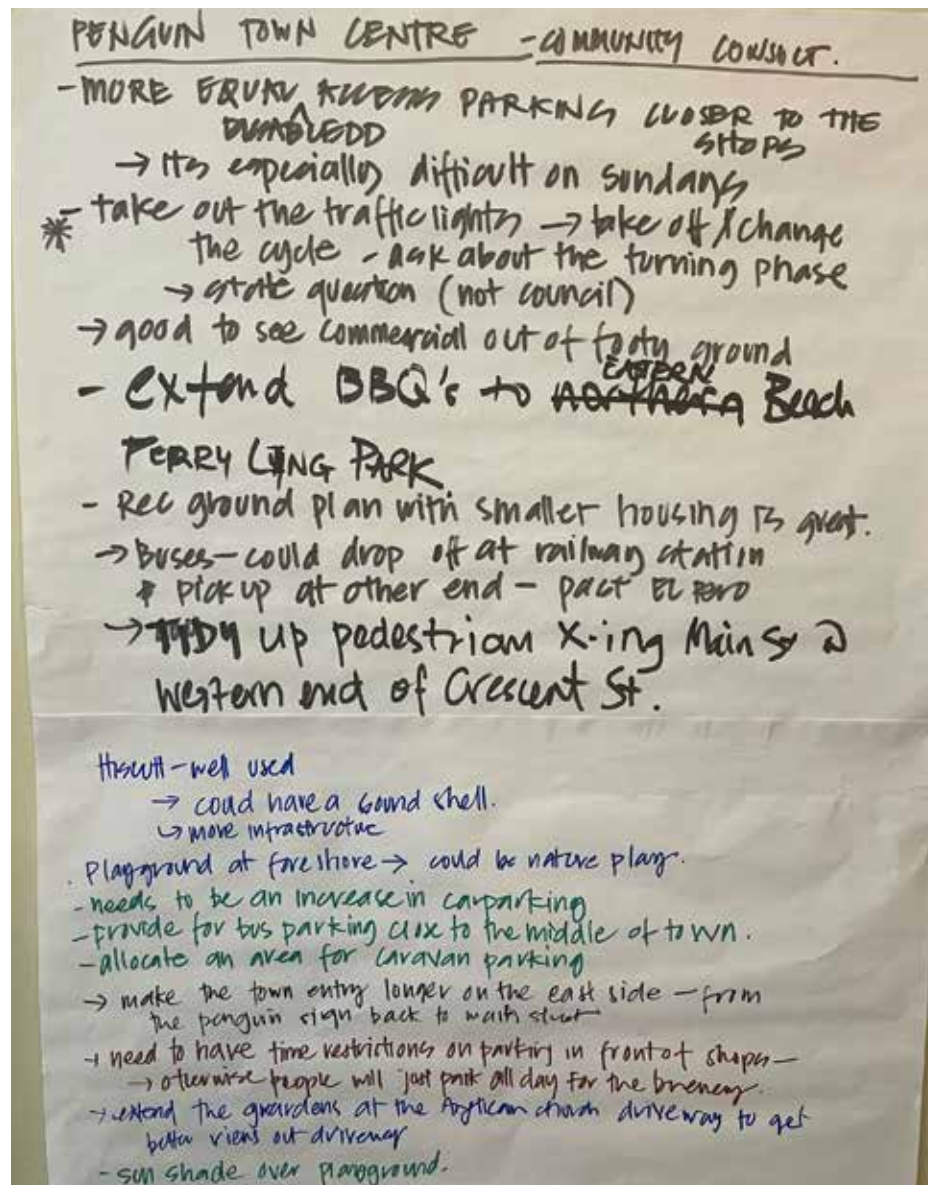 PENGUIN TOWN CENTRE - COMMUNITY CONSULT.
- MORE EQUAL ACCESS PARKING CLOSER TO THE
DISABLEDD SHOPS
→ Its especially difficult on sundays
* - take out the traffic lights → take off / change
the cycle - ask about the turning phase
→ state question (not council)
→ good to see commercial out of footy ground
EASTERN
- extend BBQ's to northern Beach
PERRY LING PARK
- Rec ground plan with smaller housing is great.
→ Buses - could drop off at railway station
& pick up at other end - past EL
→ TYDY up pedestrian X-ing Main St @
western end of Crescent St.
Hiscutt - well used
→ could have a sound shell.
↳ more infrastructue
. Playground at foreshore → could be nature play.
- needs to be an increase in carparking
- provide for bus parking close to the middle of town.
- allocate an area for caravan parking
→ make the town entry longer on the east side - from
the penguin sign back to main street
→ need to have time restrictions on parking in front of shops -
→ otherwise people will just park all day for the
→ extend the grardens at the Anglican church driveway to get
better views out driveway
- sun shade over playground.